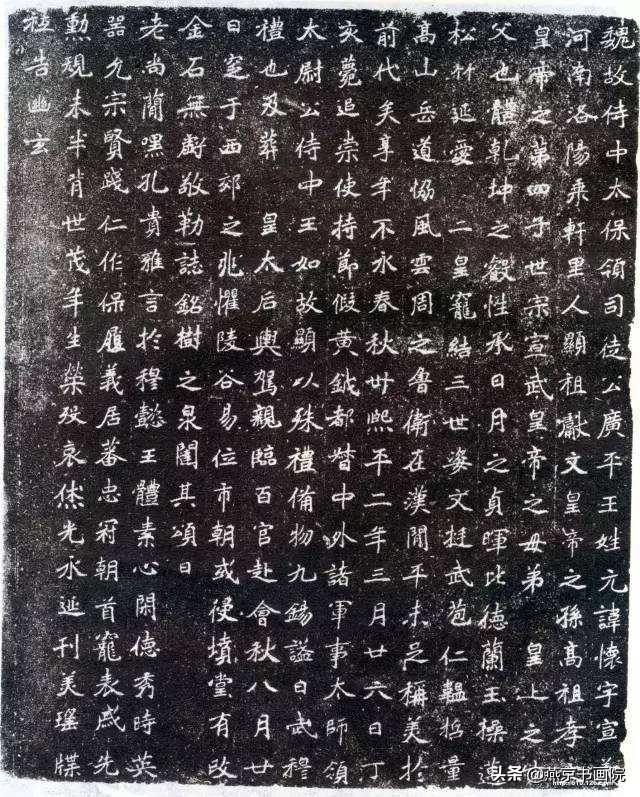 魏故侍中太保領司徒公廣平王姓元諱懷字宣義
河南洛陽乘軒里人顯祖獻文皇帝之孫高祖孝文
皇帝之第四子世宗宣武皇帝之母弟 皇上之叔
父也體乾坤之叡性承日月之貞暉比德蘭玉操邁
松竹延愛 二皇寵結三世姿文挺武苞仁韞哲量
高山岳道協風雲周之魯衛在漢閒平未足稱美於
前代矣享年不永春秋卅熙平二年三月廿六日丁
亥薨追崇使持節假黃鉞都督中外諸軍事太師領
太尉公侍中王如故顯以殊禮備物九錫謚曰武穆
禮也及葬 皇太后輿駕親臨百官赴會秋八月廿
日窆于西郊之兆懼陵谷易位市朝或侵墳堂有改
金石無虧敬勒誌銘樹之泉闥其頌曰
老尚簡嘿孔貴雅言於穆懿王體素心閑德秀時英
器允宗賢踐仁作保履義居蕃忠冠朝首寵表戚先
勳規未半背世茂年生榮歿哀休光永延刊美瑤牒
祗告幽玄
头条@燕京书画院